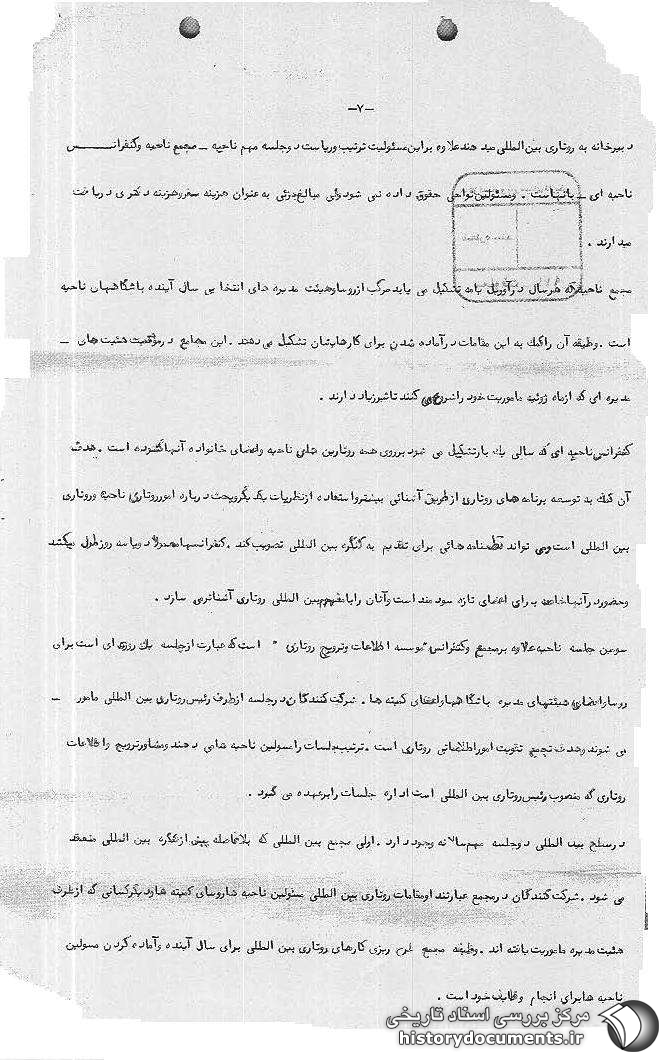 -۷-
دبیرخانه به روتاری بین المللی میدهند علاوه براین مسئولیت ترتیب وریاست دوجلسه مهم ناحیه ـ مجمع ناحیه وکنفرانس
ناحیه ای ـ باآنهاست . ومسئولین نواحی حقوق داده نمی شود ولی مبالغ جزئی به عنوان هزینه سفروهزینه دفتری دریافت
میدارند .
مجمع ناحیه که هرسال درآوریل یامه تشکیل می یابد مرکب ازروسا وهیئت مدیره های انتخابی سال آینده باشگاههای ناحیه
است . وظیفه آن راکمك به این مقامات درآماده شدن برای کارهایشان تشکیل می دهند . این مجامع درموفقیت هئیت های ـ
مدیره ای که ازماه ژوئیه ماموریت خود راشروع می کنند تاثیرزیاد دارند .
کنفرانس ناحیه ای که سالی یك بارتشکیل می شود برروی همه روتارین های ناحیه واعضای خانواده آنهاگشوده است . هدف
آن کمك به توسعه برنامه های روتاری ازطریق آشنائی بیشترواستفاده ازنظریات یکدیگروبحث درباره امورروتاری ناحیه وروتاری
بین المللی است ومی تواند قطعنامه هائی برای تقدیم به کنگره بین المللی تصویب کند . کنفرانسها معمولا دویاسه روزطول میکشد
وحضوردرآنها برای اعضای تازه سودمند است وآنان رابا مفهوم بین المللی روتاری آشناترمی سازد .
سومین جلسه ناحیه علاوه برمجمع وکنفرانس "موسسه اطلاعات وترویج روتاری " است که عبارت ازجلسه یك روزه ای است برای
روسا واعضای هیئتهای مدیره باشگاهها واعضای کمیته ها . شرکت کنندگان درجلسه ازطرف رئیس روتاری بین المللی مامور ـ
می شوند وهدف تجمع تقویت اموراطلاعاتی روتاری است . ترتیب جلسات رامسولین ناحیه هامی دهند ومشاورترویج واطلاعات
روتاری که منصوب رئیس روتاری بین المللی است اداره جلسات رابرعهده می گیرد .
درسطح بین المللی دوجلسه مهم سالانه وجود دارد . اولی مجمع بین المللی که بلافاصله پیش ازکنگره بین المللی منعقد
می شود . شرکت کنندگان درمجمع عبارتند ازمقامات روتاری بین المللی مسئولین ناحیه هاروسای کمیته هاودیگرکسانی که ازطرف
هئیت مدیره ماموریت یافته اند . وظیفه مجمع طرح ریزی کارهای روتاری بین المللی برای سال آینده وآماده کردن مسولین
ناحیه هابرای انجام وظایف خود است .
مرکز بررسی اسناد تاریخی
historydocuments.ir